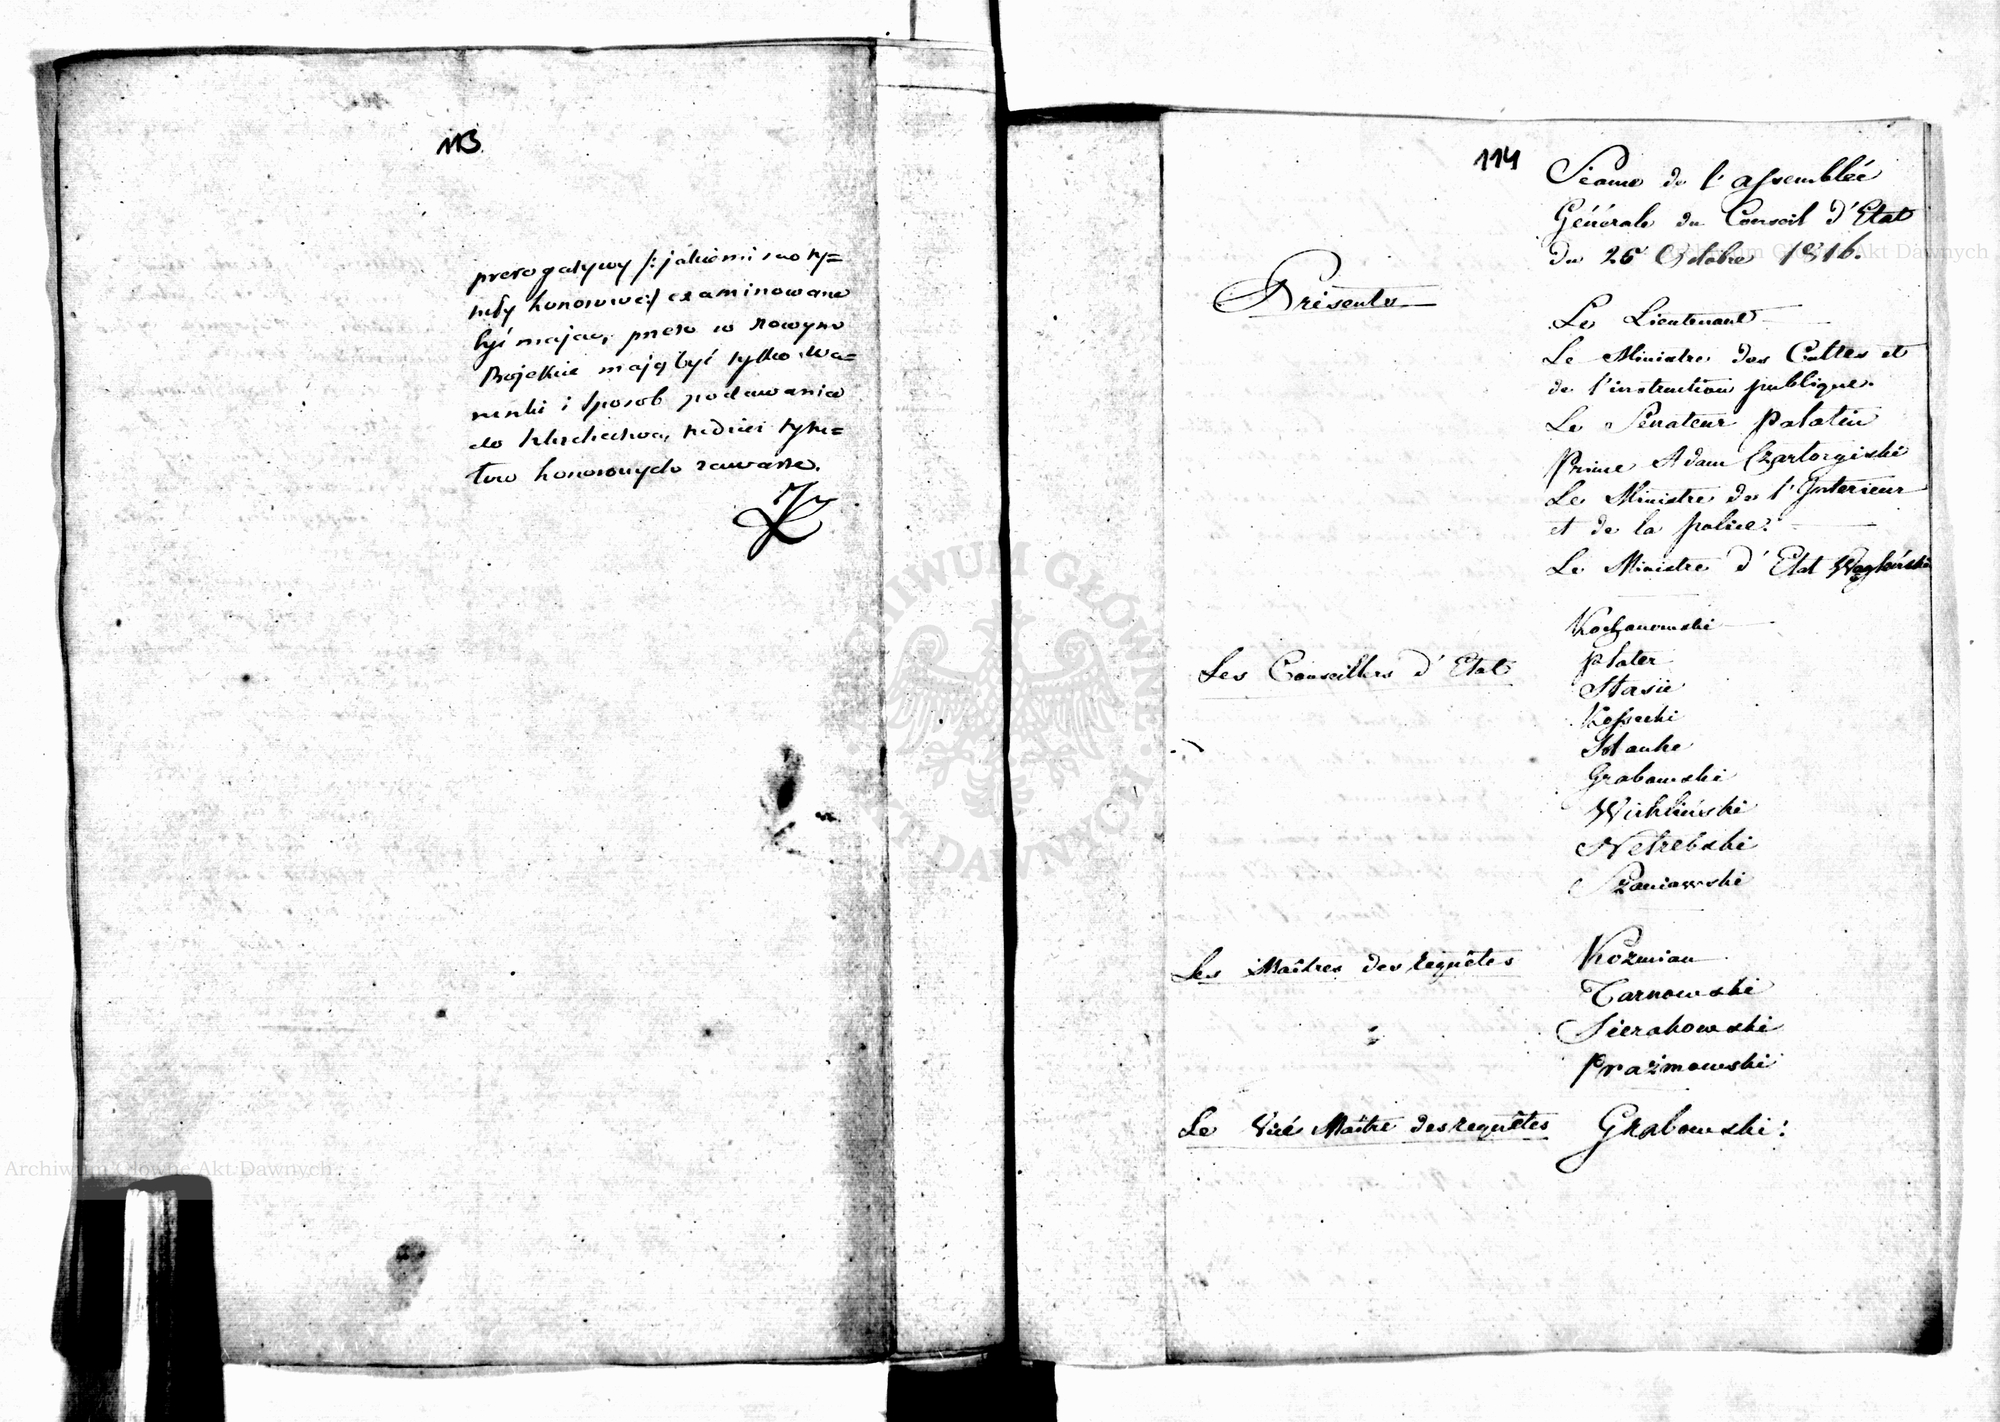 113
prerogatywy /: jakiemi są ty=
tuły honorowe :/ examinowane
być mające, przeto w nowym
Projekcie mają być tylko wa=
runki i sposób podawania
do szlachectwa, tudzież tytu=
łów honorowych zawarte.
114
Séance de l'assemblée
Générale du Conseil d'Etat
du 26 Octobre 1816.
Présents
Le Lieutenant
Le Ministre des Cultes et
de l'instruction publique.
Le Senateur Palatin
Prince Adam Czartorgiski
Le Ministre de l'Interieur
et de la police.
Le Ministre d'Etat
Kochanowski
Les Conseillers d'Etat
Plater
Stasic
Kossecki
Hauke
Grabowski
Wichliński
Netrebski
Szaniawski
Les Maîtres des requêtes
Kozmian
Tarnowski
Sierakowski
Prażmowski
Le Vice Maître des requêtes
Grabowski:
Archiwum Główne Akt Dawnych
ARCHIWUM GŁÓWNE AKT DAWNYCH
Archiwum Główne Akt Dawnych